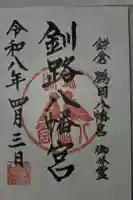 鎌倉 鶴岡八幡宮 御分霊
釧路八幡宮
令和八年四月三日